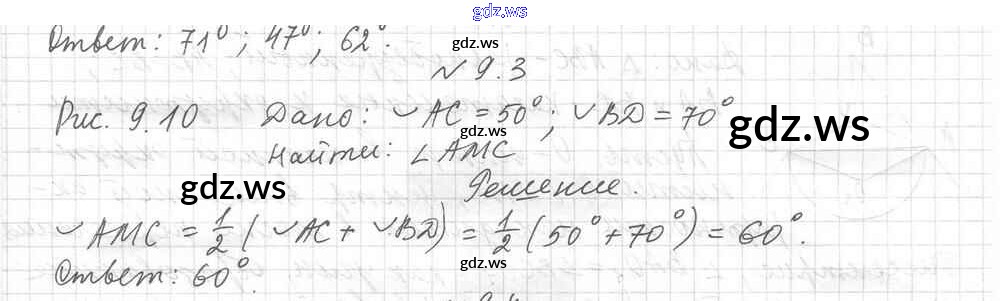 gdz.ws
Ответ: 71°; 47°; 62°.
gdz.ws
№ 9.3
Рис. 9.10 Дано: ◡ AC = 50°; ◡ BD = 70°
gdz.ws
gdz.ws
Найти: ∠ AMC
gdz.ws
Решение.
◡ AMC = 1/2 (◡ AC + ◡ BD) = 1/2 (50° + 70°) = 60°.
gdz.ws
Ответ: 60°.